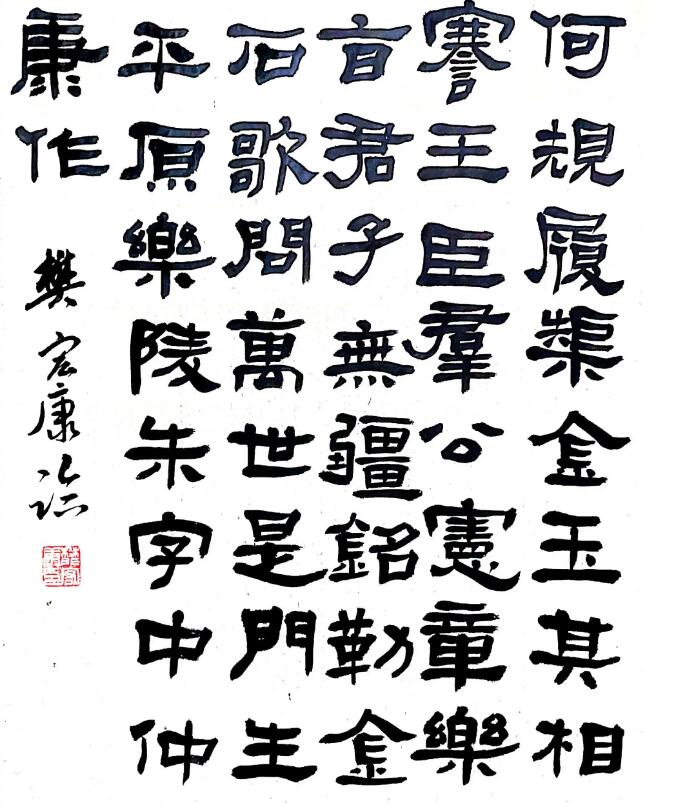 何規履榘金玉其相
謇王臣羣公憲章樂
旨君子無疆銘勒金
石歌問萬世是門生
平原樂陵朱字中仲
康作
樊宏康临